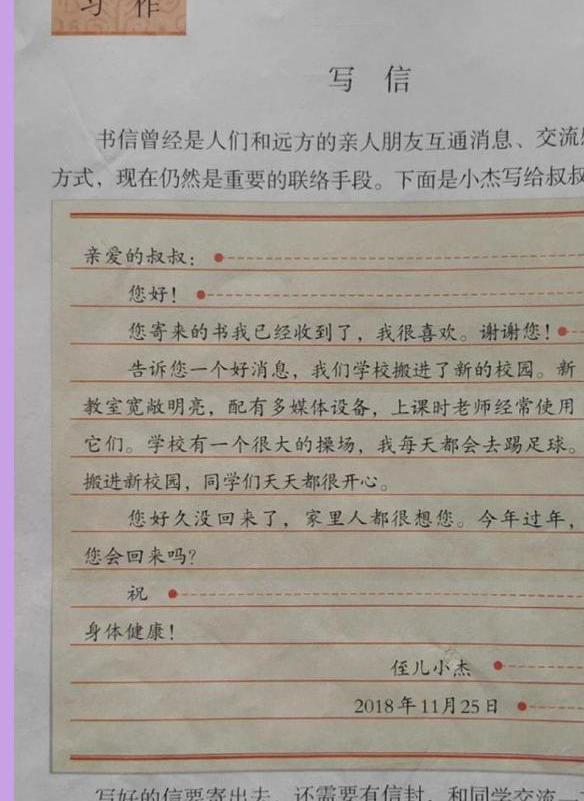 习 作
写 信
书信曾经是人们和远方的亲人朋友互通消息、交流
方式，现在仍然是重要的联络手段。下面是小杰写给叔叔
亲爱的叔叔：
您好！
您寄来的书我已经收到了，我很喜欢。谢谢您！
告诉您一个好消息，我们学校搬进了新的校园。新
教室宽敞明亮，配有多媒体设备，上课时老师经常使用
它们。学校有一个很大的操场，我每天都会去踢足球。
搬进新校园，同学们天天都很开心。
您好久没回来了，家里人都很想您。今年过年，
您会回来吗？
祝
身体健康！
侄儿小杰
2018年11月25日
写好的信要寄出去，还需要有信封。和同学交流一